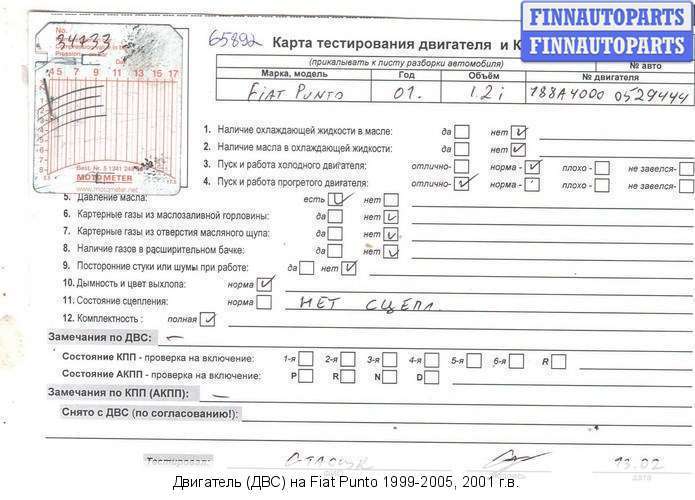 FINNAUTOPARTS
FINNAUTOPARTS
No.
34133
65892
Карта тестирования двигателя и К
(прикалывать к листу разборки автомобиля)
№ авто
Марка, модель Год Объём № двигателя
FIAT PUNTO 01. 1.2i 188A4000 0529444
4 5 7 9 11 13 15 17
Best. Nr. 5 1341 246
MOTOMETER
www.motometer.net
1. Наличие охлаждающей жидкости в масле: да нет ✓
2. Наличие масла в охлаждающей жидкости: да нет ✓
3. Пуск и работа холодного двигателя: отлично- норма - ✓ плохо - не завелся-
4. Пуск и работа прогретого двигателя: отлично- ✓ норма - плохо - не завелся-
5. Давление масла: есть ✓ нет
6. Картерные газы из маслозаливной горловины: да нет ✓
7. Картерные газы из отверстия масляного щупа: да нет ✓
8. Наличие газов в расширительном бачке: да нет ✓
9. Посторонние стуки или шумы при работе: да нет ✓
10. Дымность и цвет выхлопа: норма ✓
11. Состояние сцепления: норма НЕТ СЦЕПЛ.
12. Комплектность : полная ✓
Замечания по ДВС: –
Состояние КПП - проверка на включение: 1-я 2-я 3-я 4-я 5-я 6-я R
Состояние АКПП - проверка на включение: P R N D
Замечания по КПП (АКПП): –
Снято с ДВС (по согласованию!):
Тестировал: 13.02
дата
Двигатель (ДВС) на Fiat Punto 1999-2005, 2001 г.в.